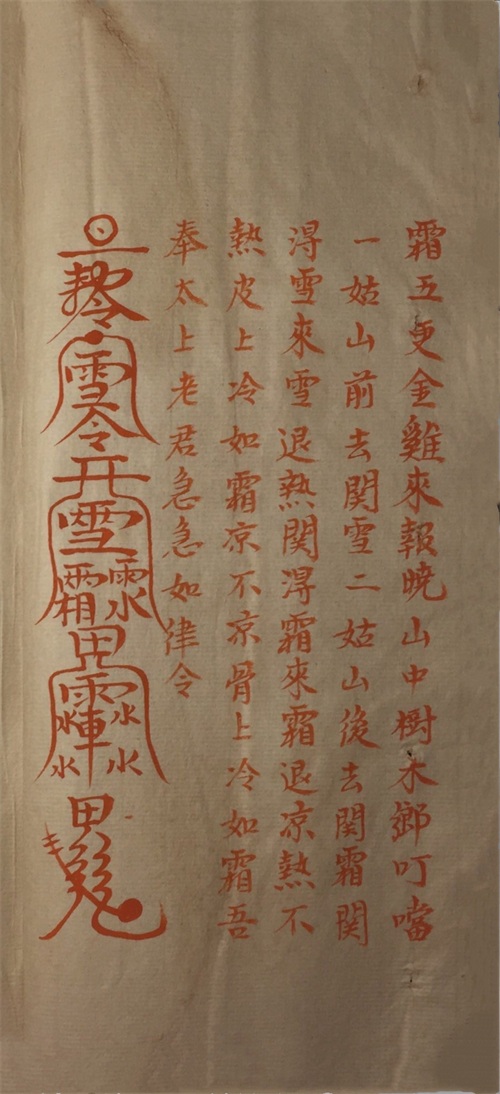 霜五更金雞來報曉山中樹木鄉叮噹
一姑山前去関雪二姑山後去関霜関
淂雪來雪退熱関淂霜來霜退凉熱不
熱皮上冷如霜凉不凉骨上冷如霜吾
奉太上老君急急如律令